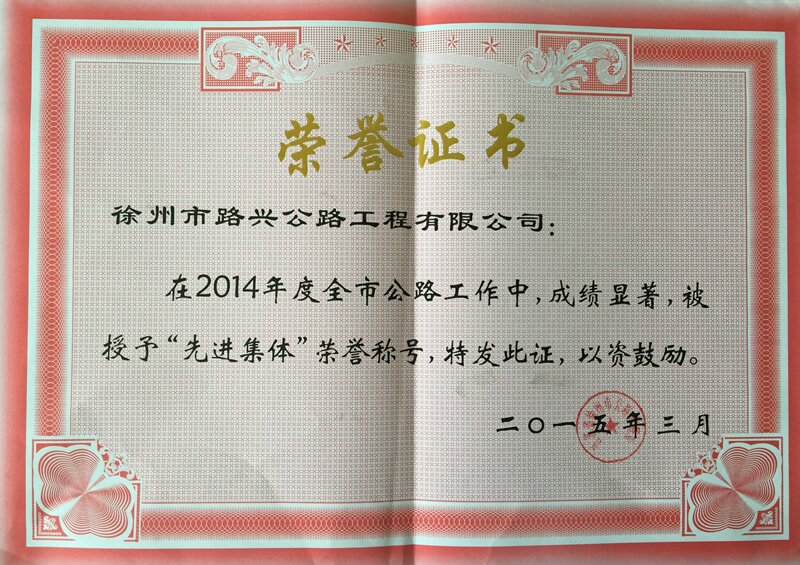 荣誉证书
徐州市路兴公路工程有限公司：
在2014年度全市公路工作中，成绩显著，被
授予“先进集体”荣誉称号，特发此证，以资鼓励。
二〇一五年三月